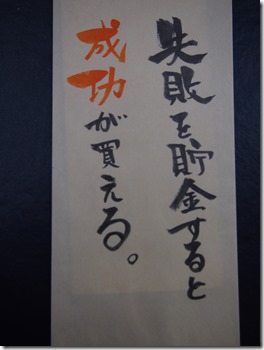 失敗を貯金すると
成功が買える。